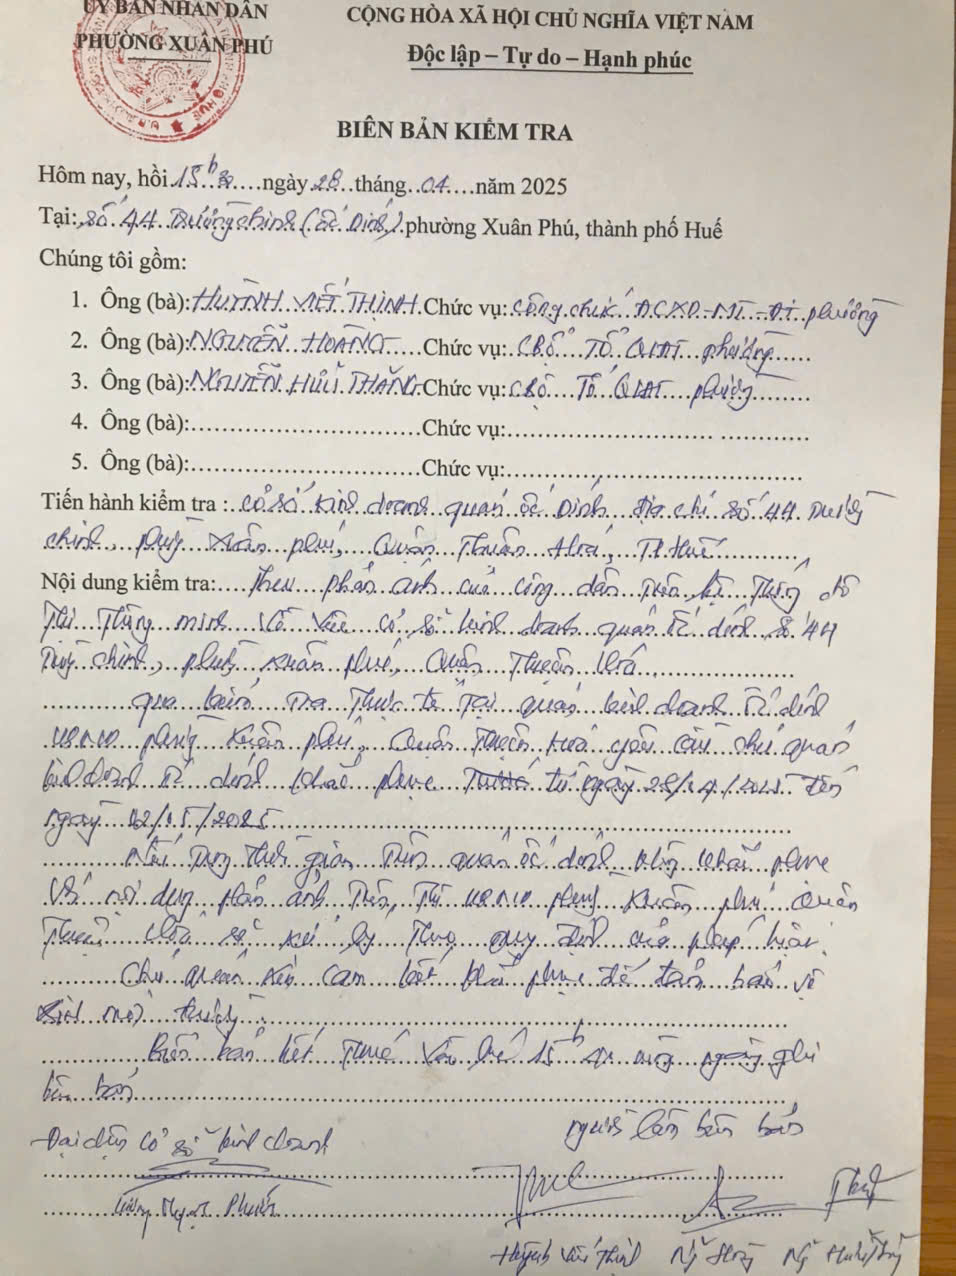 ỦY BAN NHÂN DÂN
PHƯỜNG XUÂN PHÚ
CỘNG HÒA XÃ HỘI CHỦ NGHĨA VIỆT NAM
Độc lập – Tự do – Hạnh phúc
BIÊN BẢN KIỂM TRA
Hôm nay, hồi 15h ngày 28 tháng 04 năm 2025
Tại: số 44 phường Xuân Phú, thành phố Huế
Chúng tôi gồm:
1. Ông (bà): HUỲNH VIẾT THỊNH Chức vụ: Công chức ĐCXD-MT-ĐT phường
2. Ông (bà): NGUYỄN HOÀNG Chức vụ: CBộ TỔ QLĐT phường
3. Ông (bà): NGUYỄN HỮU THẮNG Chức vụ: CBộ Tổ QLĐT phường
4. Ông (bà): Chức vụ:
5. Ông (bà): Chức vụ:
Tiến hành kiểm tra : Cơ sở kinh doanh quán ốc Dính địa chỉ số 44
chinh, Xuân phú, Quận Thuận Hoá, TP Huế
Nội dung kiểm tra: Theo phản ánh của công dân trên hệ thống đô
Thị Thông minh về việc cơ sở kinh doanh quán ốc dính số 44
chinh, Xuân phú, Quận Thuận Hoá
qua kiểm Tra Thực tế Tại quán kinh doanh ốc dính
UBND phường Xuân phú, Quận Thuận Hoá yêu cầu chủ quán
kinh doanh ốc dính khắc phục từ ngày 28/04/2025 đến
ngày 02/05/2025
Nếu Trong Thời gian Trên quán ốc dính không khắc phục
nội dung phản ánh Trên, Thì UBND phường Xuân phú Quận
Thuận Hoá sẽ xử lý Theo quy định của pháp luật.
Chủ quán cam kết khắc phục để đảm bảo vệ
môi trường.
Biên bản kết Thúc vào lúc 15h cùng ngày ghi
biên bản
Đại diện Cơ sở kinh doanh
người lập biên bản
Phước
Huỳnh Viết Thịnh Ng Hoàng Ng Hữu Thắng